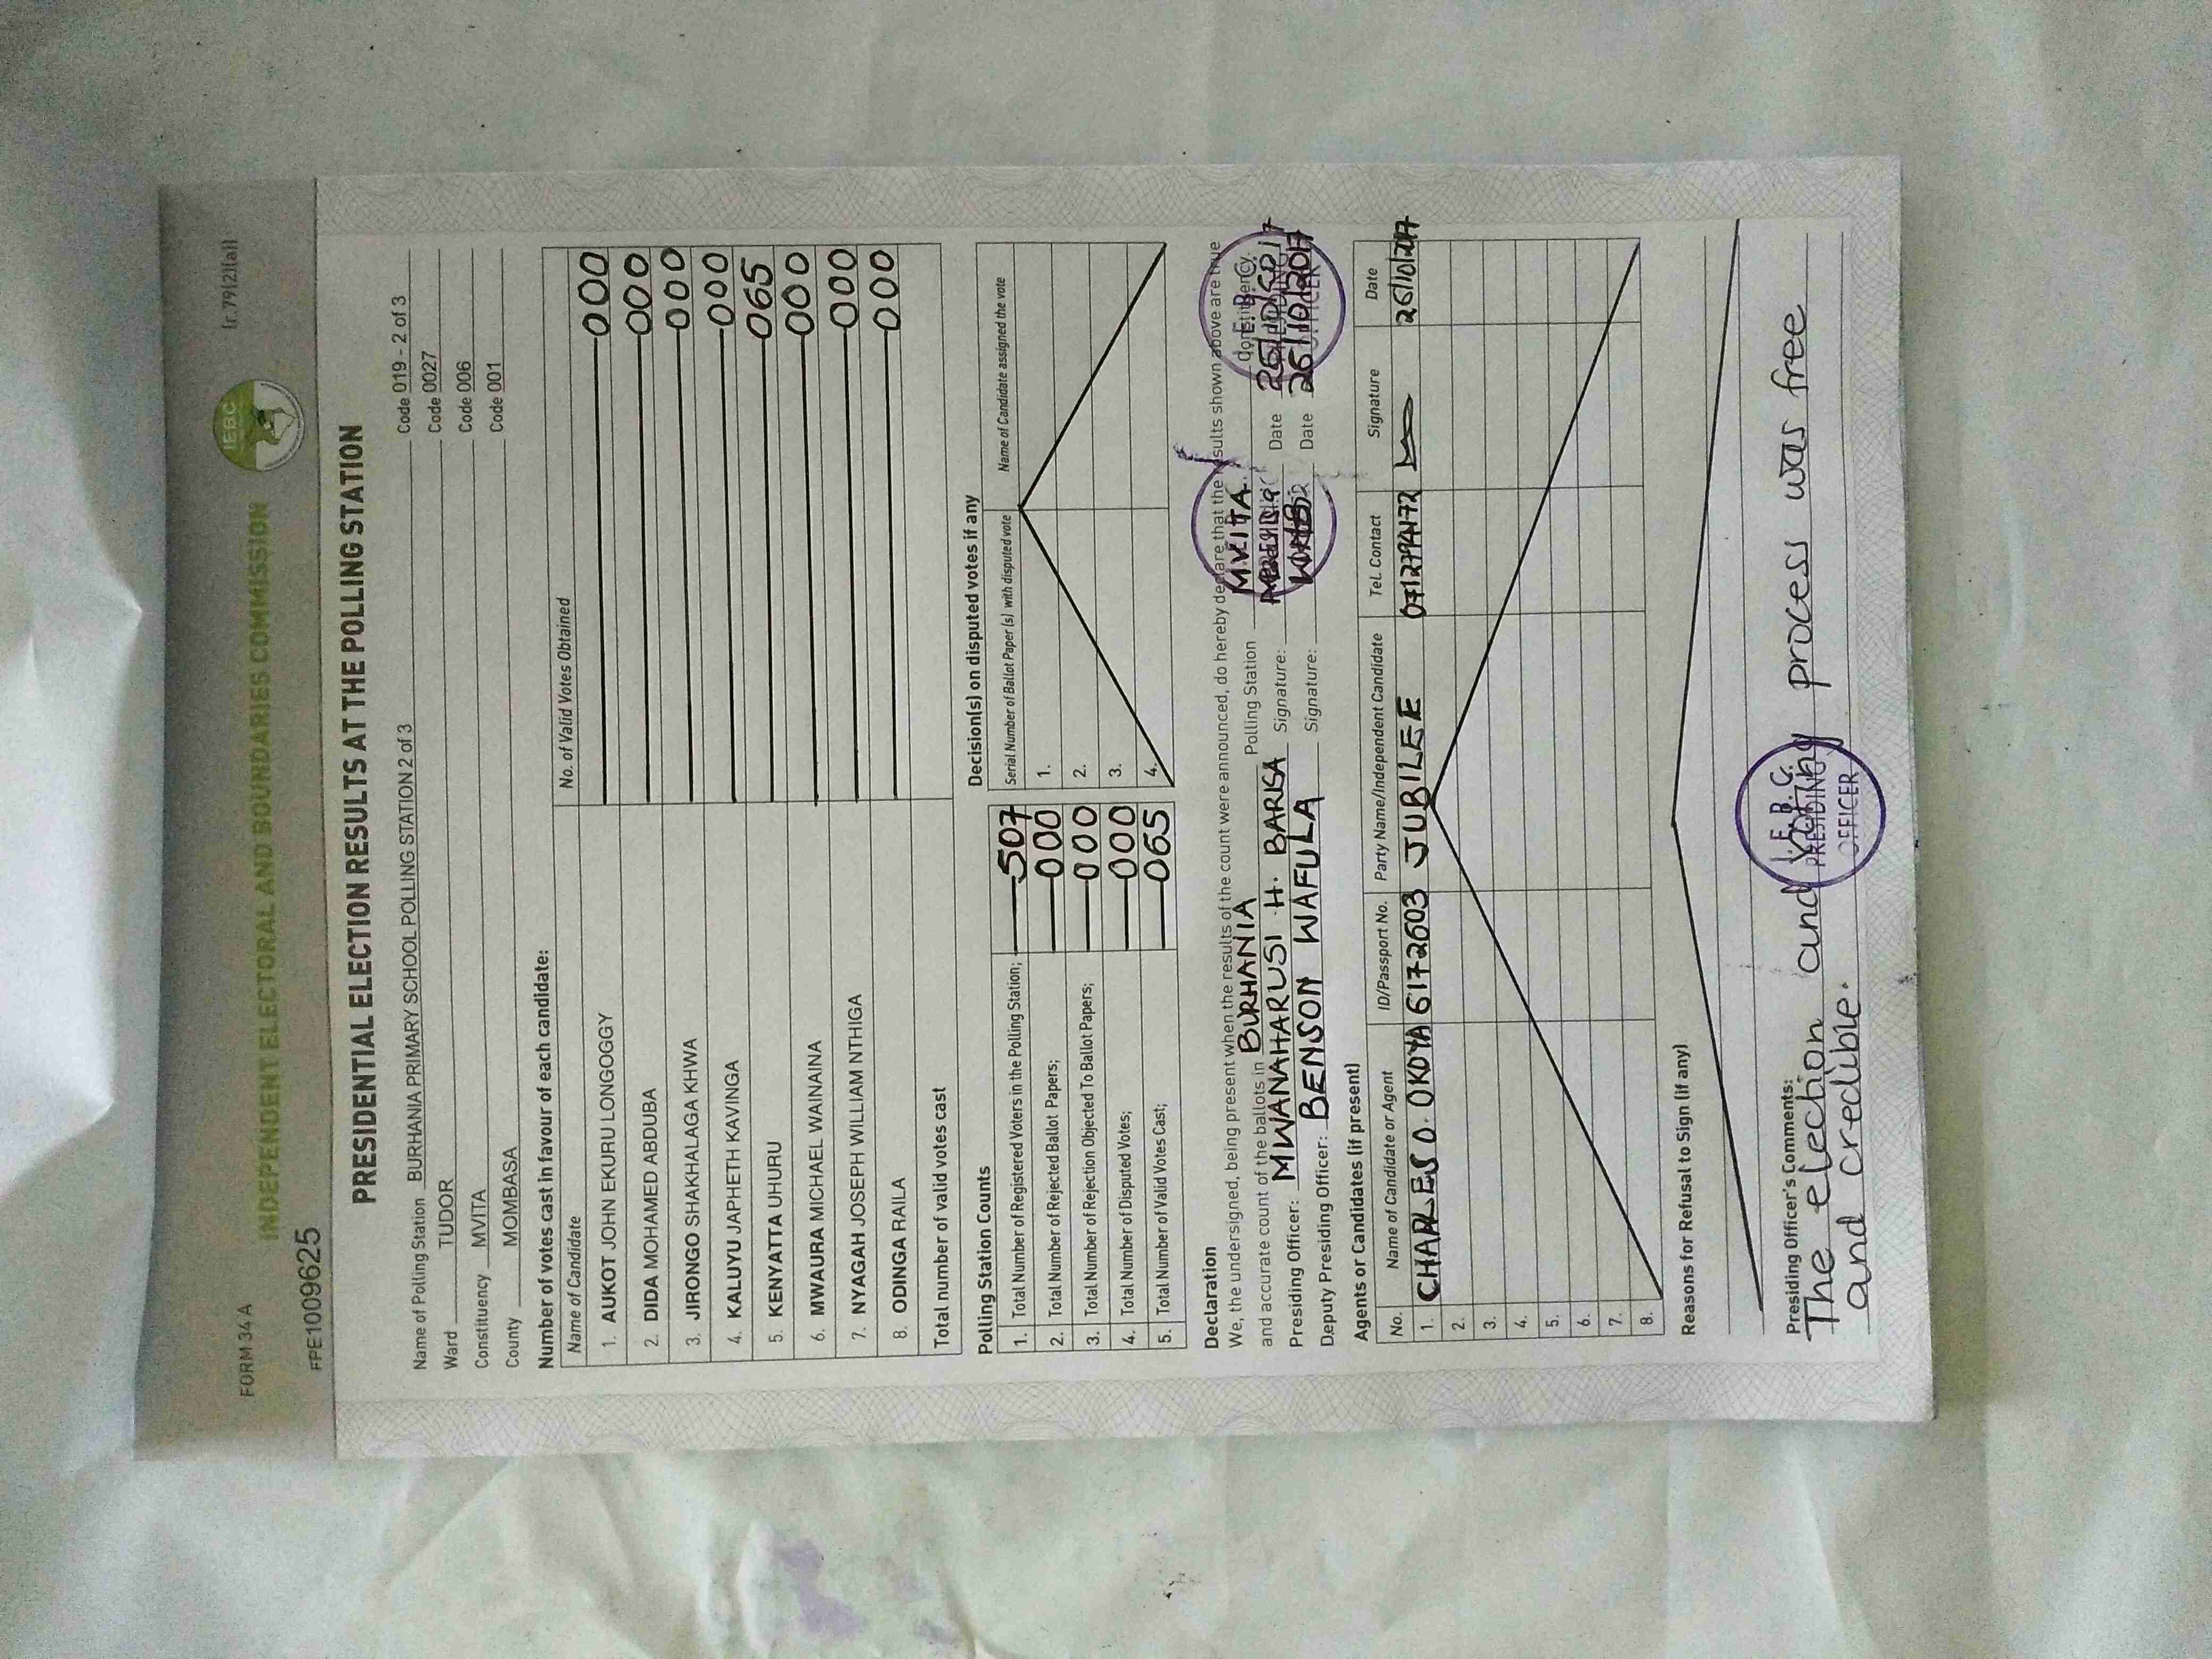 FORM 34 A
(r.79(2)(a))
INDEPENDENT ELECTORAL AND BOUNDARIES COMMISSION
IEBC
FPE1009625
PRESIDENTIAL ELECTION RESULTS AT THE POLLING STATION
Name of Polling Station BURHANIA PRIMARY SCHOOL POLLING STATION 2 of 3 Code 019 - 2 of 3
Ward TUDOR Code 0027
Constituency MVITA Code 006
County MOMBASA Code 001
Number of votes cast in favour of each candidate:
Name of Candidate No. of Valid Votes Obtained
1. AUKOT JOHN EKURU LONGOGGY 000
2. DIDA MOHAMED ABDUBA 000
3. JIRONGO SHAKHALAGA KHWA 000
4. KALUYU JAPHETH KAVINGA 000
5. KENYATTA UHURU 065
6. MWAURA MICHAEL WAINAINA 000
7. NYAGAH JOSEPH WILLIAM NTHIGA 000
8. ODINGA RAILA 000
Total number of valid votes cast
Polling Station Counts
1. Total Number of Registered Voters in the Polling Station; 507
2. Total Number of Rejected Ballot Papers; 000
3. Total Number of Rejection Objected To Ballot Papers; 000
4. Total Number of Disputed Votes; 000
5. Total Number of Valid Votes Cast; 065
Decision(s) on disputed votes if any
Serial Number of Ballot Paper (s) with disputed vote Name of Candidate assigned the vote
1.
2.
3.
4.
Declaration
We, the undersigned, being present when the results of the count were announced, do hereby declare that the results shown above are true
and accurate count of the ballots in BURHANIA Polling Station MVITA
Presiding Officer: MWANAHARUSI H. BARISA Signature: Date 26/10/2017
Deputy Presiding Officer: BENSON WAFULA Signature: Date 26/10/2017
Agents or Candidates (if present)
No. Name of Candidate or Agent ID/Passport No. Party Name/Independent Candidate Tel. Contact Signature Date
1. CHARLES O. OKOYA 6172603 JUBILEE 0712794172 26/10/2017
2.
3.
4.
5.
6.
7.
8.
Reasons for Refusal to Sign (if any)
Presiding Officer's Comments:
The election and voting process was free
and credible.
I.E.B.C.
PRESIDING
OFFICER